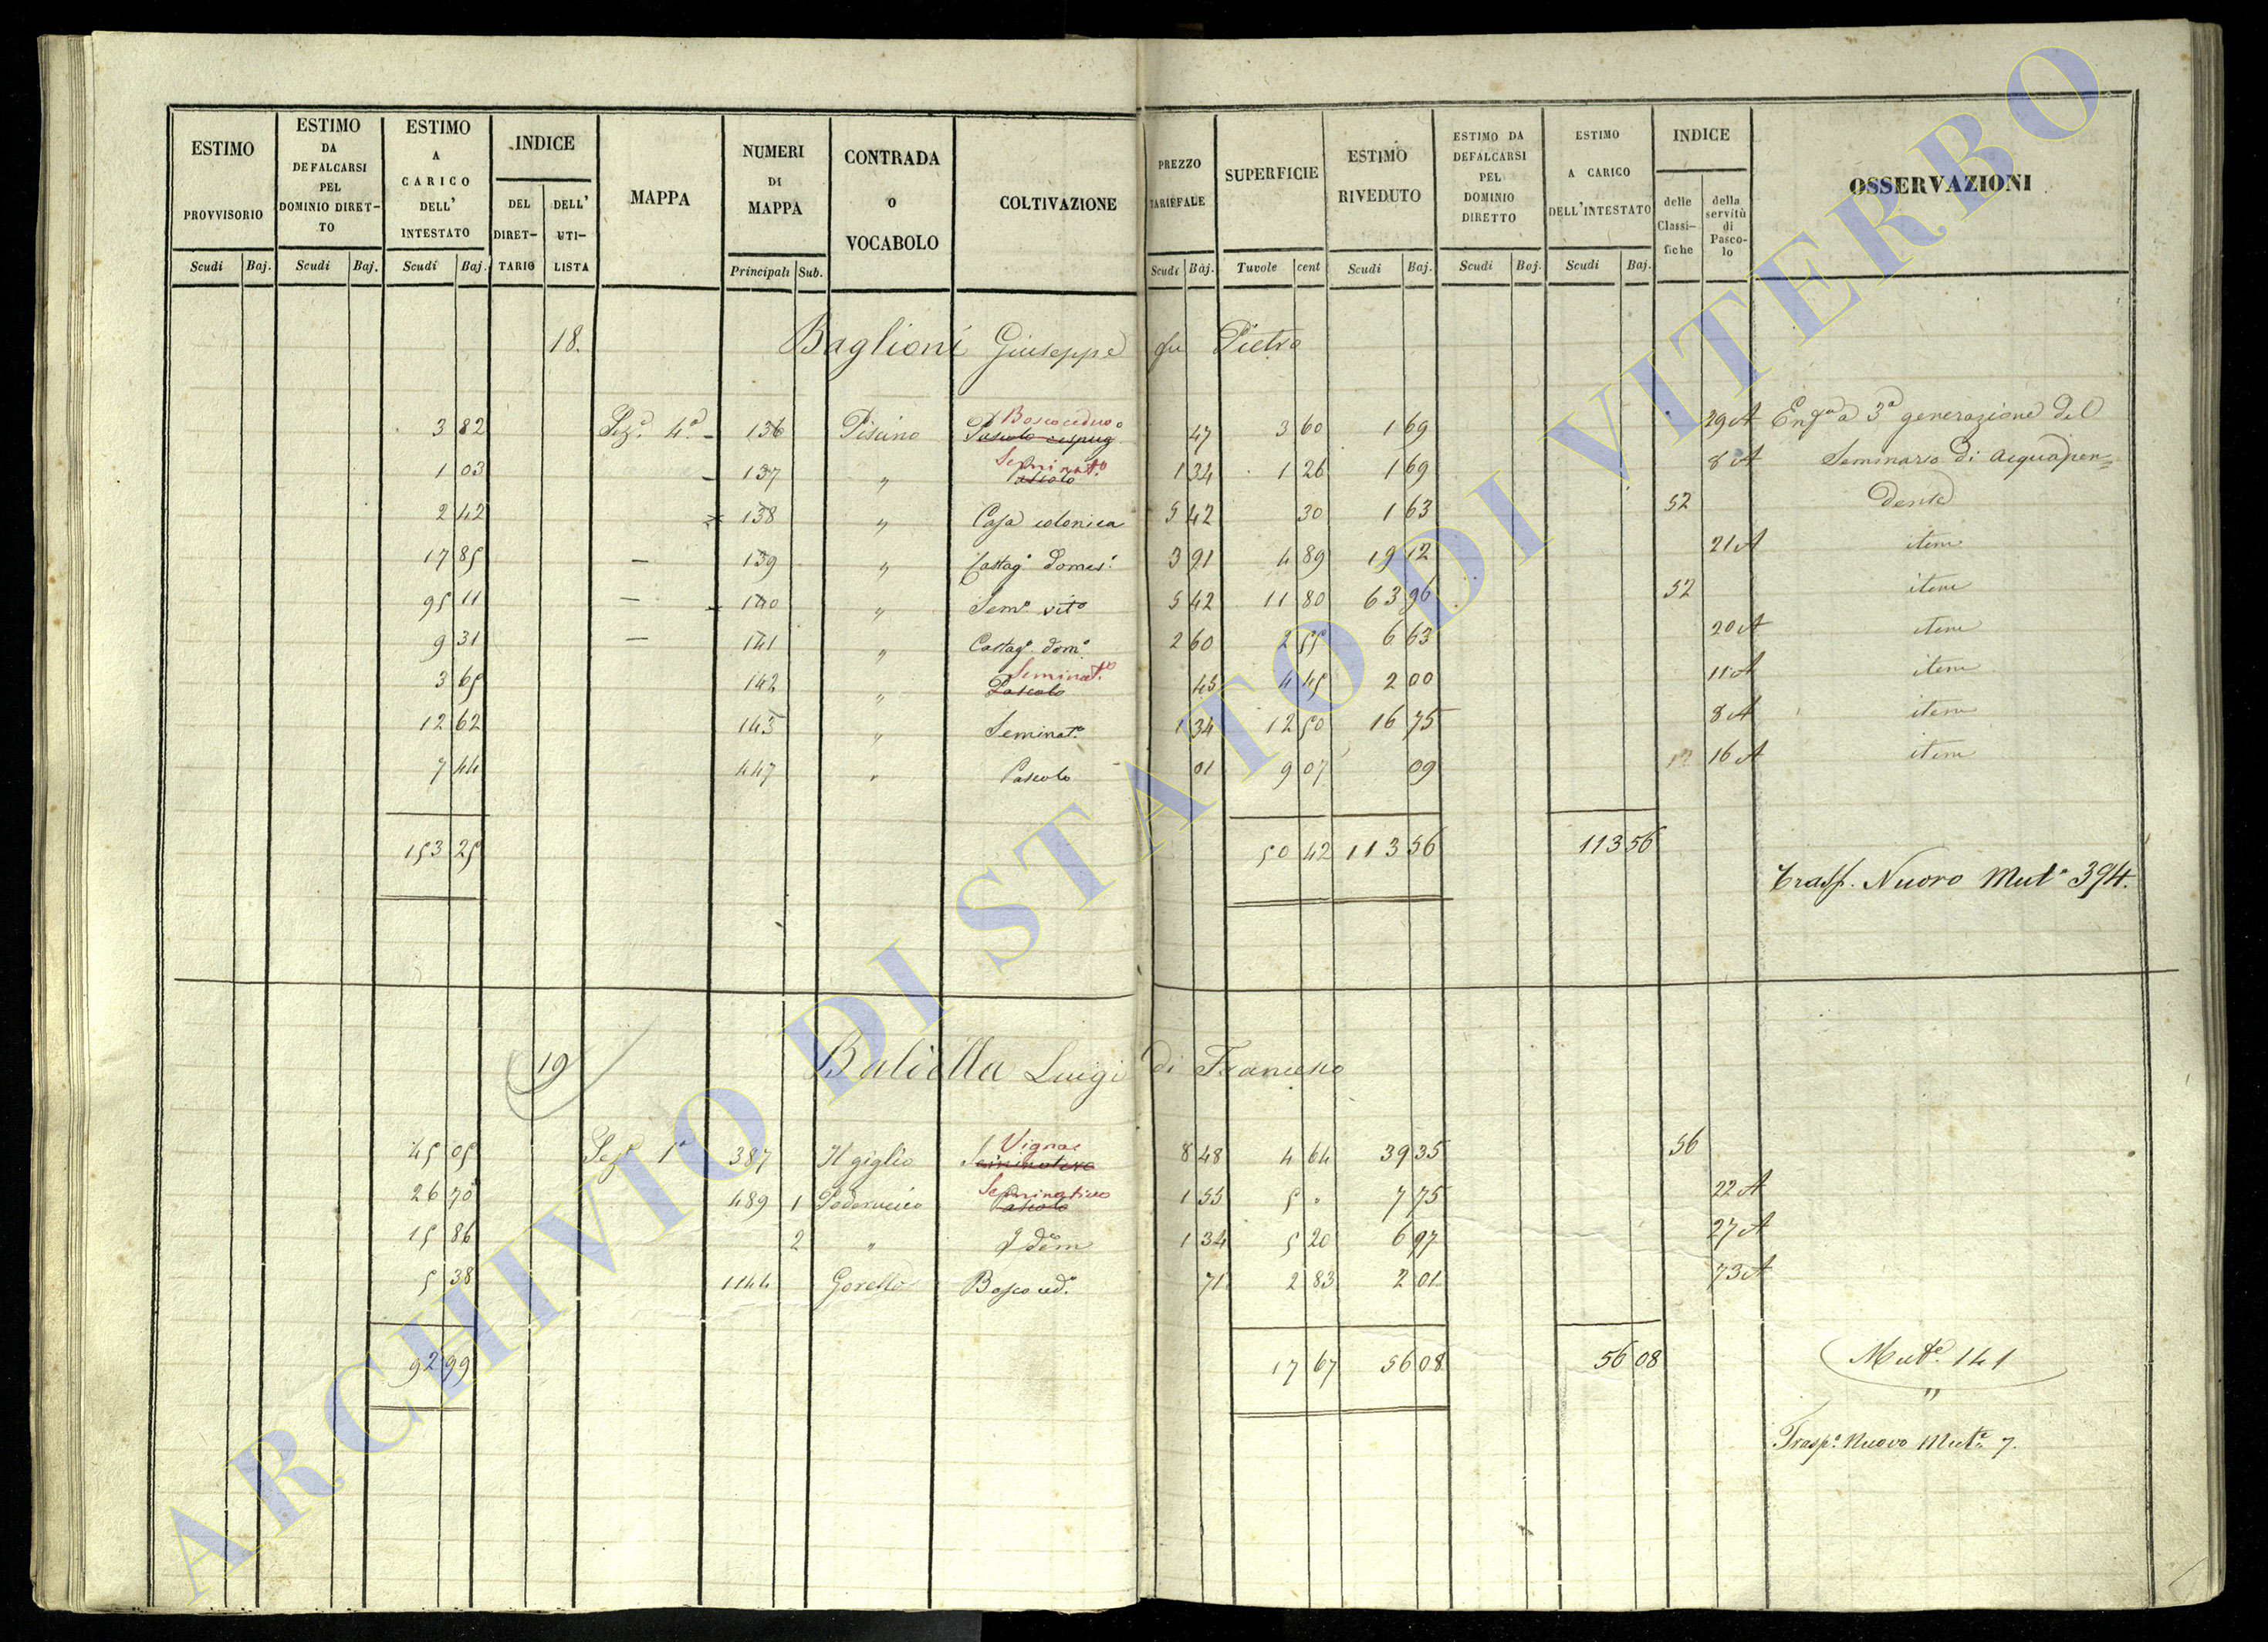 ESTIMO PROVVISORIO
ESTIMO DA DEFALCARSI PEL DOMINIO DIRET-TO
ESTIMO A CARICO DELL' INTESTATO
INDICE
DEL DIRET-TARIO
DELL' UTI-LISTA
MAPPA
NUMERI DI MAPPA
CONTRADA o VOCABOLO
COLTIVAZIONE
PREZZO TARIFFALE
SUPERFICIE
ESTIMO RIVEDUTO
ESTIMO DA DEFALCARSI PEL DOMINIO DIRETTO
ESTIMO A CARICO DELL'INTESTATO
INDICE
delle Classi-fiche
della servitù di Pasco-lo
OSSERVAZIONI
Scudi Baj. Scudi Baj. Scudi Baj. Principali Sub. Scudi Baj. Tavole cent Scudi Baj. Scudi Baj. Scudi Baj.
18. Baglioni Giuseppe fu Pietro
3 82 Sez.e 4.a 136 Piscino Bosco ceduo Pascolo cespug 47 3 60 1 69 29 A 3a generazione del
1 03 137 " Seminat.o Pascolo 1 34 1 26 1 69 8 A Seminario di Acquapen=
2 42 138 " Casa colonica 5 42 30 1 63 52 dente
17 85 139 " Castag. domes. 3 91 4 89 19 12 21 A item
95 11 140 " Sem.o vit.o 5 42 11 80 63 96 52 item
9 31 141 " Castag. dom.o 2 60 2 55 6 63 20 A item
3 65 142 " Seminat.o Pascolo 45 4 45 2 00 11 A item
12 62 143 " Seminat.o 1 34 12 50 16 75 8 A item
7 44 447 " Pascolo 01 9 07 09 16 A item
153 25 50 42 113 56 113 56
Trasp. Nuovo Mut.a 394.
19 Luigi di Francesco
45 05 Sez.e 1a 387 Il giglio Vigna Seminativo 8 48 4 64 39 35 56
26 70 489 1 Seminativo Pascolo 1 55 5 " 7 75 22 A
15 86 2 " Idem 1 34 5 20 6 97 27 A
5 38 1144 Gorello Bosco ced.o 71 2 83 2 01 73 A
92 99 17 67 56 08 56 08
Mut.e 141
"
Trasp.o Nuovo Mut.e 7.
ARCHIVIO DI STATO DI VITERBO